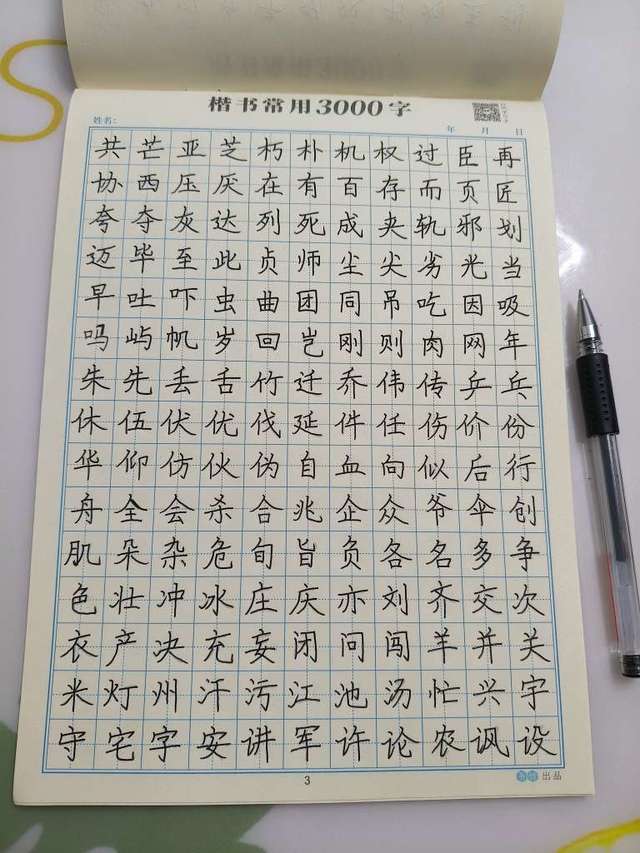 楷书常用3000字
姓名: 年 月 日
共芒亚芝朽朴机权过臣再
协西压厌在有百存而页匠
夸夺灰达列死成夹轨邪划
迈毕至此贞师尘尖劣光当
早吐吓虫曲团同吊吃因吸
吗屿帆岁回岂刚则肉网年
朱先丢舌竹迁乔伟传乒乓
休伍伏优伐延件任伤价份
华仰仿伙伪自血向似后行
舟全会杀合兆企众爷伞创
肌朵杂危旬旨负各名多争
色壮冲冰庄庆亦刘齐交次
衣产决充妄闭问闯羊并关
米灯州汗污江池汤忙兴宇
守宅字安讲军许论农讽设
3
出品